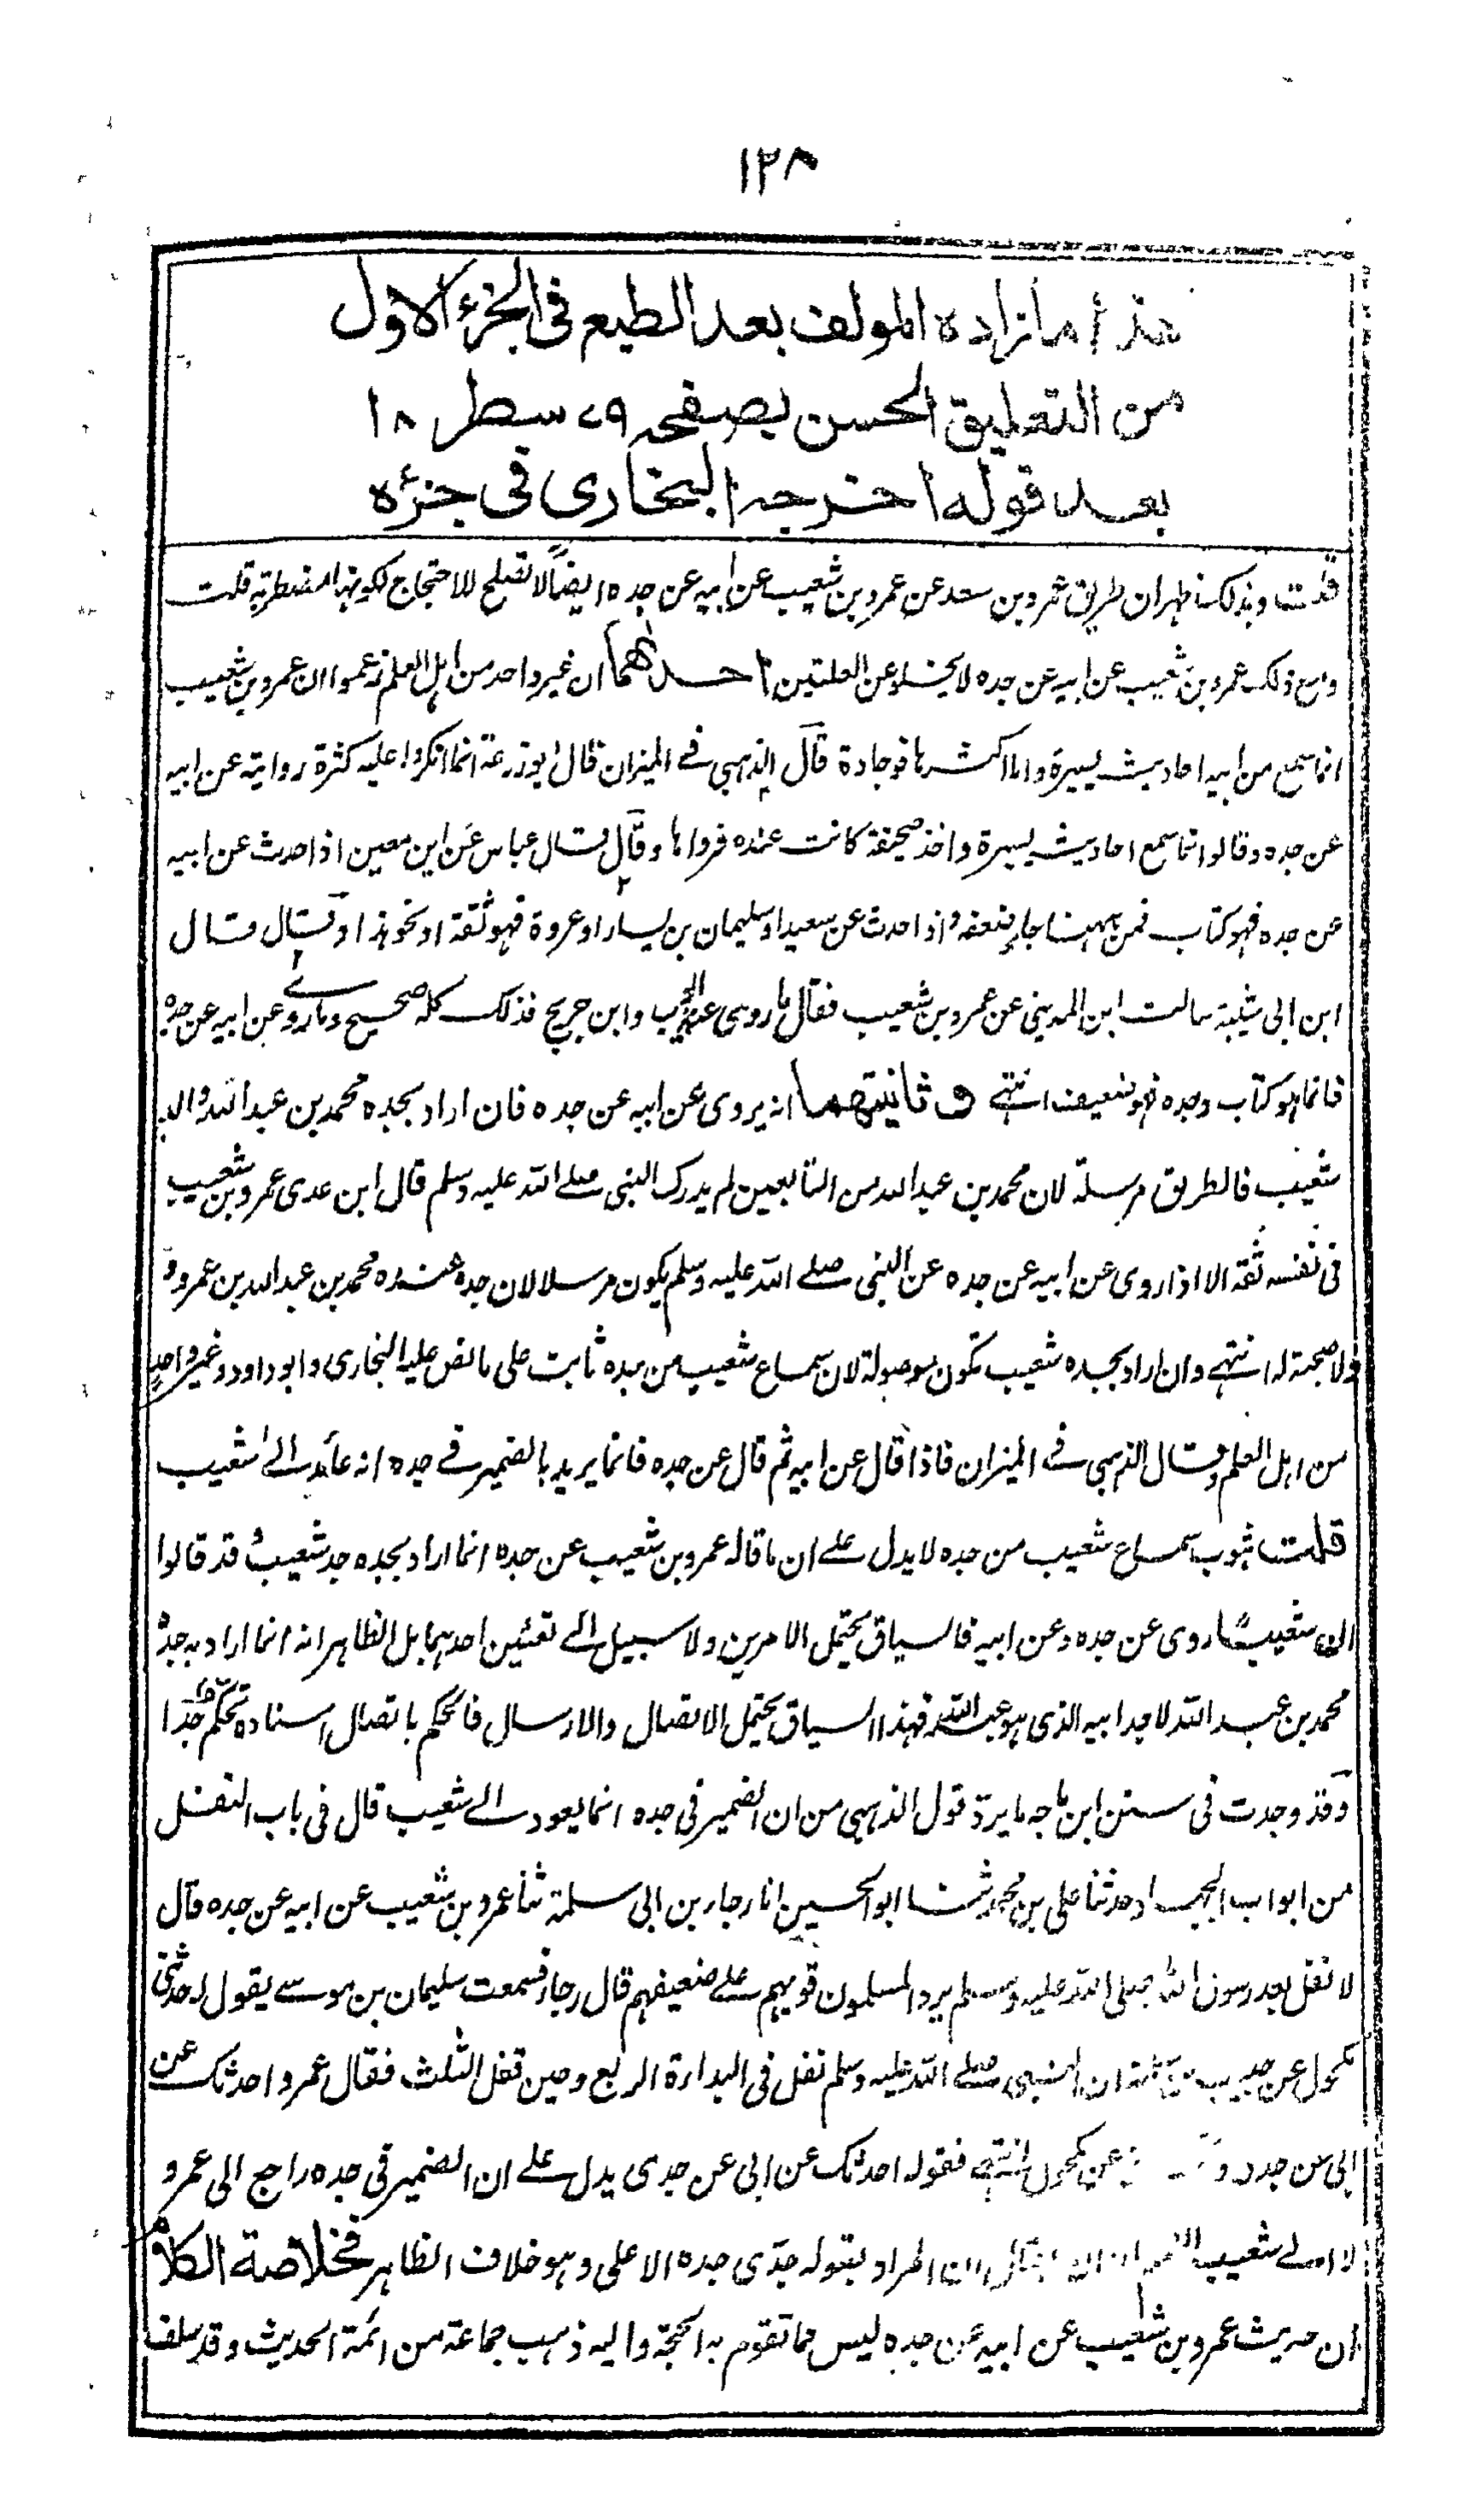 ١٢٨
هذا ما زاده المولف بعد الطبع فى الجزء الاول
من التعليق الحسن بصفحه ٧٩ سطر ١٨
بعد قوله اخرجه البخارى فى جزءه
قلت وبذلك ظهر ان طريق عمرو بن سعد عن عمرو بن شعيب عن ابيه عن جده ايضاً لا تصلح للاحتجاج لكونها مضطربة قلت
ومع ذلك عمرو بن شعيب عن ابيه عن جده لا يخلو عن العلتين احدهما ان غير واحد من اهل العلم زعموا ان عمرو بن شعيب
انما سمع من ابيه احاديث يسيرة واما اكثرها فوجادة قال الذهبى فى الميزان قال ابو زرعة انما انكروا عليه كثرة روايته عن ابيه
عن جده وقالوا انما سمع احاديث يسيرة واخذ صحيفة كانت عنده فرواها وقال قال عباس عن ابن معين اذا حدث عن ابيه
عن جده فهو كتاب فمن ههنا جاء ضعفه واذا حدث عن سعيد او سليمان بن يسار او عروة فهو ثقة او نحو هذا وقال قال
ابن ابى شيبة سالت ابن المدينى عن عمرو بن شعيب فقال ما روى عنه ايوب وابن جريج فذلك كله صحيح وما روى عن ابيه عن جده
فانما هو كتاب وجده فهو ضعيف انتهى وثانيتهما انه يروى عن ابيه عن جده فان اراد بجده محمد بن عبد الله والد
شعيب فالطريق مرسلة لان محمد بن عبد الله من التابعين لم يدرك النبى صلى الله عليه وسلم قال ابن عدى عمرو بن شعيب
فى نفسه ثقة الا اذا روى عن ابيه عن جده عن النبى صلى الله عليه وسلم يكون مرسلا لان جده عنده محمد بن عبد الله بن عمرو و
ولا صحبة له انتهى وان اراد بجده شعيب تكون موصولة لان سماع شعيب من جده ثابت على ما نص عليه البخارى وابو داود وغير واحد
من اهل العلم وقال الذهبى فى الميزان فاذا قال عن ابيه ثم قال عن جده فانما يريد بالضمير فى جده انه عائد الى شعيب
قلت ثبوت سماع شعيب من جده لا يدل على ان ما قاله عمرو بن شعيب عن جده انما اراد بجده جد شعيب وقد قالوا
ان شعيبا روى عن جده وعن ابيه فالسياق يحتمل الامرين ولا سبيل الى تعيين احدهما بل الظاهر انه انما اراد به جده
محمد بن عبد الله لا جد ابيه الذى هو عبد الله فهذا السياق يحتمل الاتصال والارسال فالحكم باتصال اسناده تحكم جدا
وقد وجدت فى سنن ابن ماجه ما يرد قول الذهبى من ان الضمير فى جده انما يعود الى شعيب قال فى باب النفل
من ابواب الجهاد حدثنا على بن محمد ثنا ابو الحسين انا رجاء بن ابى سلمة ثنا عمرو بن شعيب عن ابيه عن جده قال
لا نفل بعد رسول الله صلى الله عليه وسلم يرد المسلمون قويهم على ضعيفهم قال رجاء فسمعت سليمان بن موسى يقول له حدثنى
مكحول عن حبيب بن مسلمة ان النبى صلى الله عليه وسلم نفل فى البداءة الربع وحين قفل الثلث فقال عمرو احدثك عن
ابى عن جدى و عن مكحول انتهى فقوله احدثك عن ابى عن جدى يدل على ان الضمير فى جده راجع الى عمرو
لا الى شعيب ان المراد بقوله جدى جده الاعلى وهو خلاف الظاهر فخلاصة الكلام
ان حديث عمرو بن شعيب عن ابيه عن جده ليس مما تقوم به الحجة واليه ذهب جماعة من ائمة الحديث وقد سلف